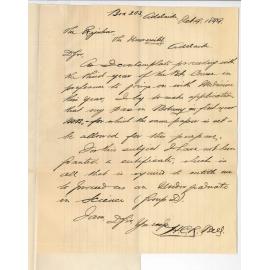 Box 203, Adelaide
Feb 9. 1899.
The Registrar,
The University
Adelaide
D Sir,
As I contemplate proceeding with
the third year of the BA Course in
preference to going on with Medicine
this year, I beg to make application
that my pass in Botany in first year
for which the same paper is set
be allowed for this purpose.
In this subject I have not been
granted a certificate, which is
all that is required to entitle me
to proceed as an Undergraduate
in Science (Group D).
I am D Sir Yours